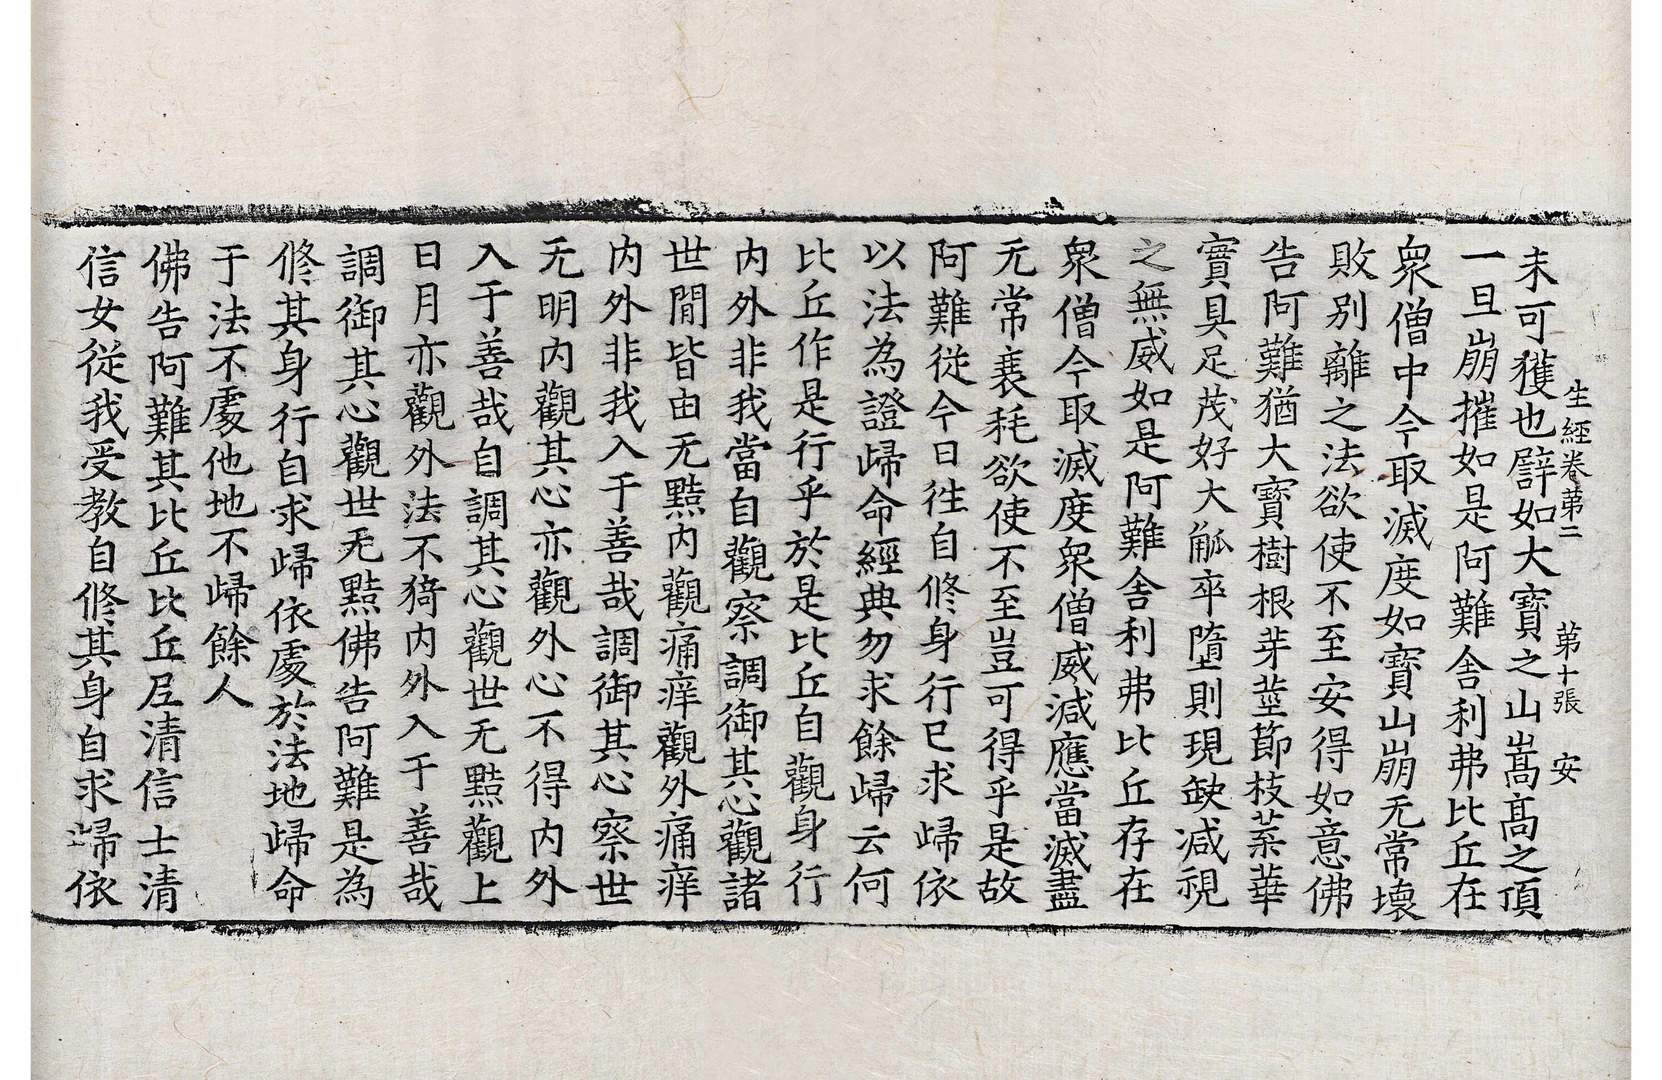 生經卷第二　第十張　安
未可獲也譬如大寶之山嵩高之頂
一旦崩摧如是阿難舍利弗比丘在
衆僧中今取滅度如寶山崩无常壞
敗別離之法欲使不至安得如意佛
告阿難猶大寶樹根芽莖節枝葉華
實具足茂好大觚卒墮則現缺减視
之無威如是阿難舍利弗比丘存在
衆僧今取滅度衆僧威減應當滅盡
无常衰耗欲使不至豈可得乎是故
阿難從今日往自修身行已求歸依
以法為證歸命經典勿求餘歸云何
比丘作是行乎於是比丘自觀身行
内外非我當自觀察調御其心觀諸
世間皆由无黠内觀痛痒觀外痛痒
内外非我入于善哉調御其心察世
无明内觀其心亦觀外心不得内外
入于善哉自調其心觀世无黠觀上
日月亦觀外法不猗内外入于善哉
調御其心觀世无黠佛告阿難是為
修其身行自求歸依處於法地歸命
于法不處他地不歸餘人
佛告阿難其比丘比丘尼清信士清
信女從我受教自修其身自求歸依